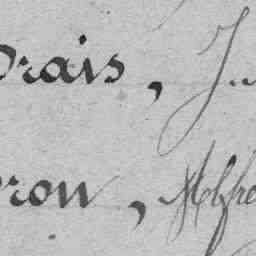 orais, J
ron, Alfre